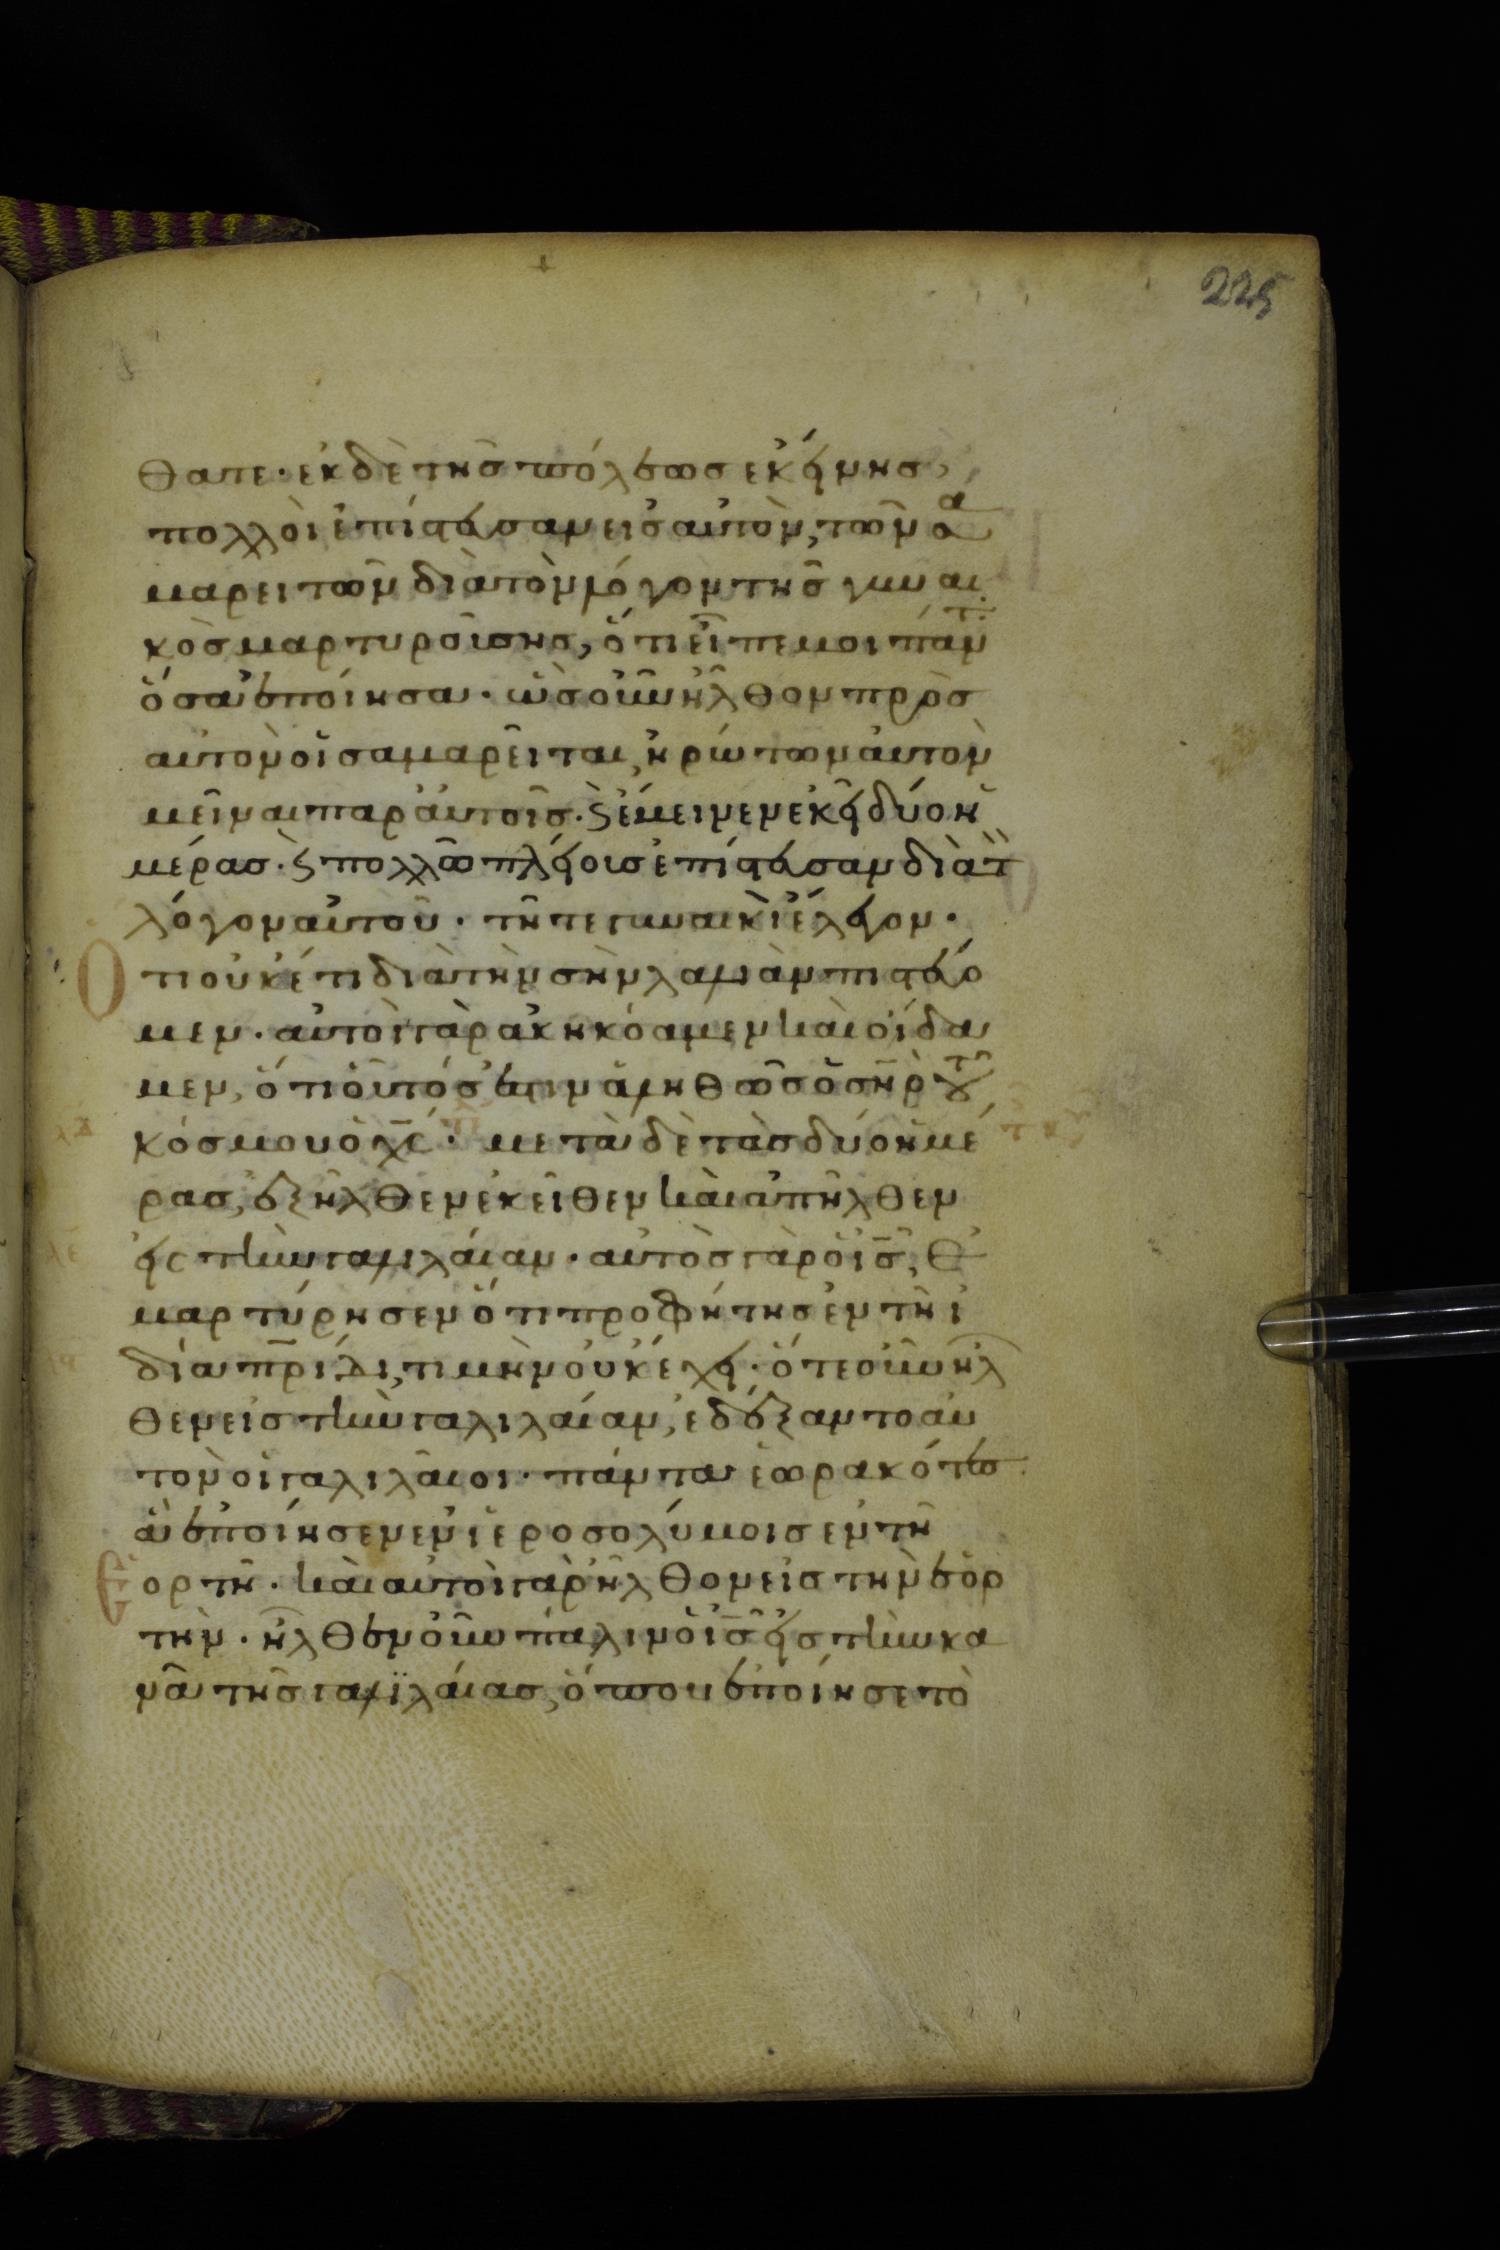 225
θατε· ἐκ δὲ τῆς πόλεως ἐκείνης,
πολλοὶ ἐπίστευσαν εἰς αὐτὸν, τῶν σα
μαρειτῶν διὰ τὸν λόγον τῆς γυναι
κὸς μαρτυρούσης, ὅτι εἶπε μοι πάντ
ὅσα ἐποίησα· ὡς οὖν ἦλθον πρὸς
αὐτὸν οἱ σαμαρεῖται, ἠρώτων αὐτὸν
μεῖναι παρ αὐτοῖς· ϗ ἔμεινεν ἐκεῖ δύο ἡ
μέρας· ϗ πολλῶ πλείους ἐπίστευσαν διὰ τ
λόγον αὐτοῦ· τῆ τε γυναικὶ ἔλεγον·
Ὅτι οὐκέτι διὰ τὴν σὴν λαλιὰν πιστεύο
μεν· αὐτοὶ γὰρ ἀκηκόαμεν καὶ οἴδα
μεν, ὅτι οὗτός ἐστιν ἀληθῶς ὁ σῆρ τοῦ
κόσμου ὁ χς· μετὰ δὲ τὰς δύο ἡμέ
ρας, ἐξῆλθεν ἐκεῖθεν καὶ ἀπῆλθεν
εἰς τὴν γαλιλαίαν· αὐτὸς γὰρ ὁ ις, ἐ
μαρτύρησεν ὅτι προφήτης ἐν τῆ ἰ
δία πρίδι, τιμὴν οὐκ ἔχει· ὅτε οὖν ἦλ
θεν εἰς τὴν γαλιλαίαν, ἐδέξαντο αὐ
τὸν οἱ γαλιλαῖοι· πάντα ἑωρακότες
ἃ ἐποίησεν ἐν ἱεροσολύμοις ἐν τῆ
ἑορτῆ· καὶ αὐτοὶ γὰρ ἦλθον εἰς τὴν ἑορ
τὴν· ἦλθεν οὖν πάλιν ὁ ις εἰς τὴν κα
νᾶ τῆς γαλιλαίας, ὅπου ἐποίησε τὸ